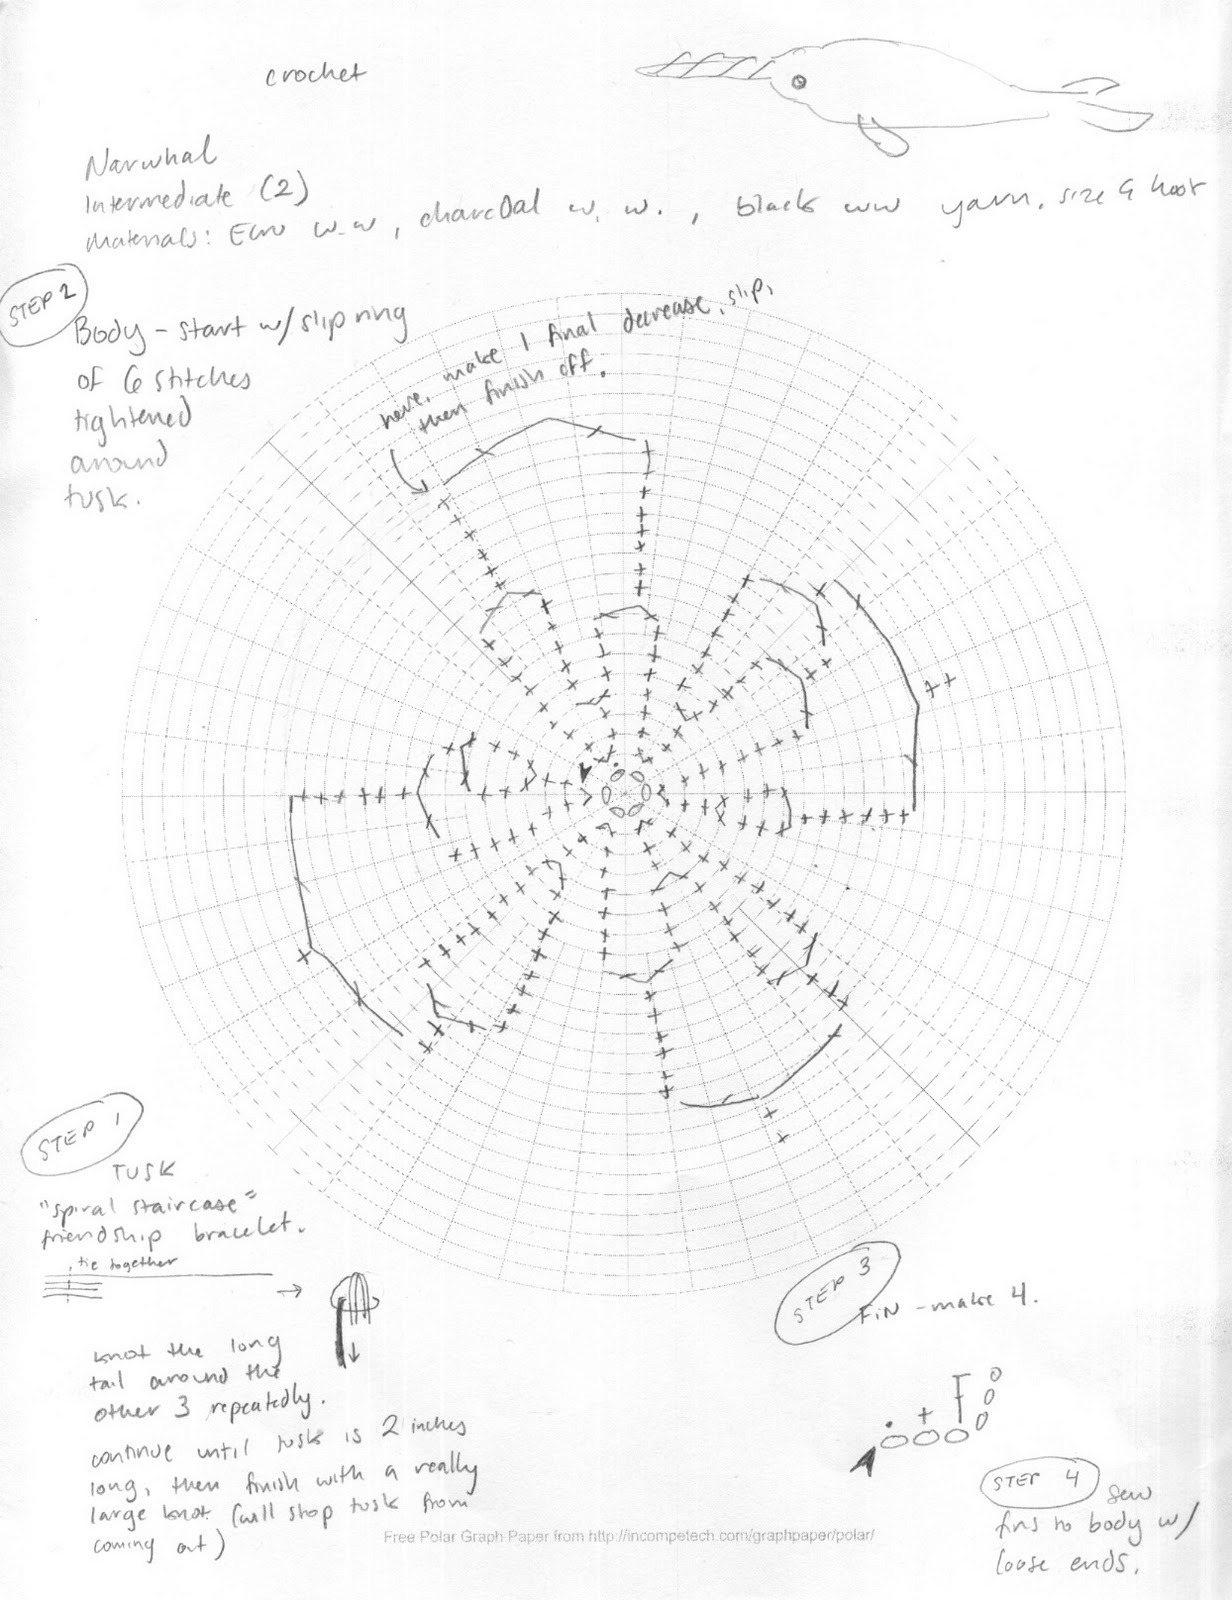 crochet
Narwhal
Intermediate (2)
Materials: Ecru w.w, charcoal w. w. , black ww yarn. size G hook
STEP 2
Body - start w/ slip ring
of 6 stitches
tightened
around
tusk.
here, make 1 final decrease, slip,
then finish off.
STEP 1
TUSK
"spiral staircase"
friendship bracelet.
tie together
knot the long
tail around the
other 3 repeatedly.
continue until tusk is 2 inches
long, then finish with a really
large knot (will stop tusk from
coming out)
STEP 3
FIN - make 4.
STEP 4
sew
fins to body w/
loose ends.
Free Polar Graph Paper from http://incompetech.com/graphpaper/polar/